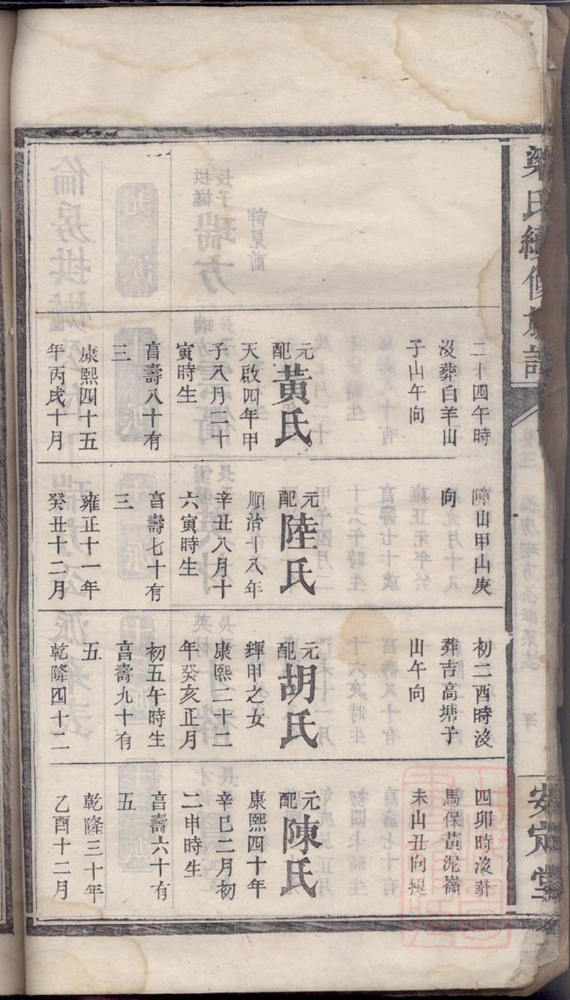 梁氏續修族譜
安定堂
二十四午時
沒葬白羊山
子山午向
元配黃氏
天啟四年甲
子八月二十
寅時生
享壽八十有
三
康熙四十五
年丙戌十月
障山甲山庚
向
元配陸氏
順治十八年
辛丑八月十
六寅時生
享壽七十有
三
雍正十一年
癸丑十二月
初二酉時沒
葬吉高塘子
山午向
元配胡氏
輝甲之女
康熙二十二
年癸亥正月
初五午時生
享壽九十有
五
乾隆四十二
四卯時沒葬
馬保黃泥嶺
未山丑向
元配陳氏
康熙四十年
辛巳二月初
二申時生
享壽六十有
五
乾隆三十年
乙酉十二月